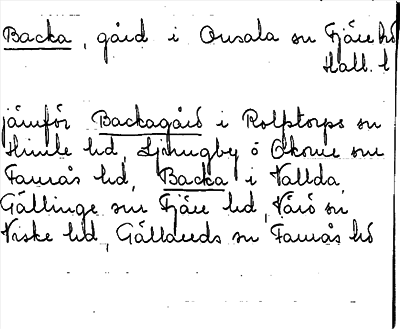 Backa, gård i Onsala sn Fjäre hd
Hall. l
jämför Backagård i Rolfstorps sn
Himle hd, Ljungby o Okome sn
Faurås hd, Backa i Vallda,
Gällinge sn Fjäre hd, Värö sn
Viske hd, Gällareds sn Faurås hd